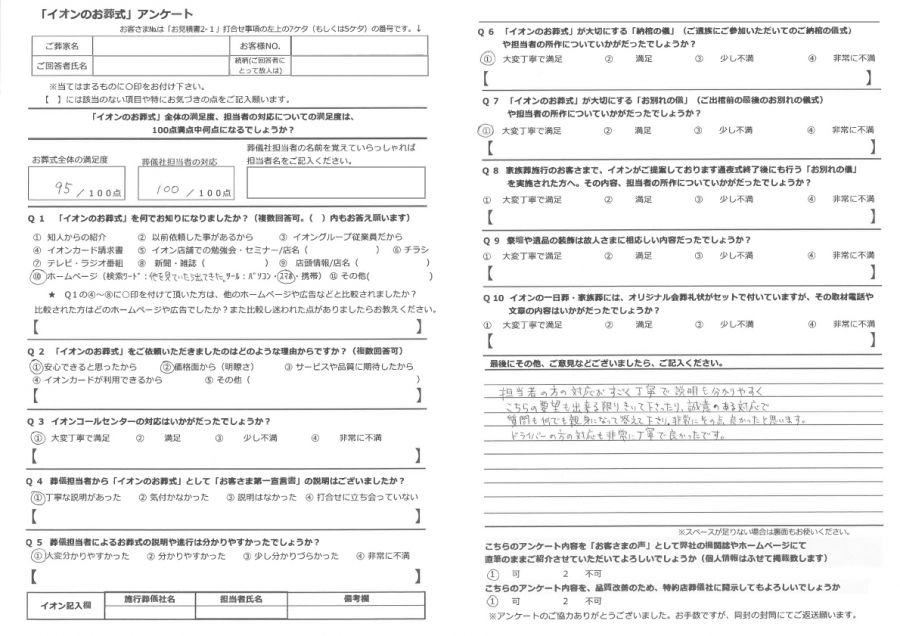 「イオンのお葬式」アンケート
お客さま№は「お見積書2-1」打合せ事項の左上の7ケタ（もしくは5ケタ）の番号です。↓
ご葬家名 お客様NO.
ご回答者氏名 続柄(ご回答者にとって故人は)
※当てはまるものに○印をお付け下さい。
【 】には該当のない項目や特にお気づきの点をご記入願います。
「イオンのお葬式」全体の満足度、担当者の対応についての満足度は、
100点満点中何点になるでしょうか？
お葬式全体の満足度 葬儀社担当者の対応 葬儀社担当者の名前を覚えていらっしゃれば
担当者名をご記入ください。
95 ／100点 100 ／100点
Q 1 「イオンのお葬式」を何でお知りになりましたか？（複数回答可。( ）内もお答え願います）
① 知人からの紹介 ② 以前依頼した事があるから ③ イオングループ従業員だから
④ イオンカード請求書 ⑤ イオン店舗での勉強会・セミナー/店名 ( ) ⑥ チラシ
⑦ テレビ・ラジオ番組 ⑧ 新聞・雑誌 ( ) ⑨ 店頭情報/店名 ( )
⑩ ホームページ（検索ﾜｰﾄﾞ：他を見ていたら出てきた。ﾂｰﾙ：ﾊﾟｿｺﾝ・スマホ・携帯） ⑪ その他( )
★ Q1の④～⑧に○印を付けて頂いた方は、他のホームページや広告などと比較されましたか？
比較された方はどのホームページや広告でしたか？また比較し迷われた点がありましたらお教えください。
【 】
Q 2 「イオンのお葬式」をご依頼いただきましたのはどのような理由からですか？（複数回答可）
①安心できると思ったから ②価格面から（明瞭さ） ③ サービスや品質に期待したから
④ イオンカードが利用できるから ⑤ その他（ ）
【 】
Q 3 イオンコールセンターの対応はいかがだったでしょうか？
① 大変丁寧で満足 ② 満足 ③ 少し不満 ④ 非常に不満
【 】
Q 4 葬儀担当者から「イオンのお葬式」として「お客さま第一宣言書」の説明はございましたか？
①丁寧な説明があった ② 気付かなかった ③ 説明はなかった ④ 打合せに立ち会っていない
【 】
Q 5 葬儀担当者によるお葬式の説明や進行は分かりやすかったでしょうか？
①大変分かりやすかった ② 分かりやすかった ③ 少し分かりづらかった ④ 非常に不満
【 】
イオン記入欄 施行葬儀社名 担当者氏名 備考欄
Q 6 「イオンのお葬式」が大切にする「納棺の儀」（ご遺族にご参加いただいてのご納棺の儀式）
や担当者の所作についていかがだったでしょうか？
① 大変丁寧で満足 ② 満足 ③ 少し不満 ④ 非常に不満
【 】
Q 7 「イオンのお葬式」が大切にする「お別れの儀」（ご出棺前の最後のお別れの儀式）
や担当者の所作についていかがだったでしょうか？
① 大変丁寧で満足 ② 満足 ③ 少し不満 ④ 非常に不満
【 】
Q 8 家族葬施行のお客さまで、イオンがご提案しております通夜式終了後にも行う「お別れの儀」
を実施された方へ。その内容、担当者の所作についていかがだったでしょうか？
① 大変丁寧で満足 ② 満足 ③ 少し不満 ④ 非常に不満
【 】
Q 9 祭壇や遺品の装飾は故人さまに相応しい内容だったでしょうか？
① 大変丁寧で満足 ② 満足 ③ 少し不満 ④ 非常に不満
【 】
Q 10 イオンの一日葬・家族葬には、オリジナル会葬礼状がセットで付いていますが、その取材電話や
文章の内容はいかがだったでしょうか？
① 大変丁寧で満足 ② 満足 ③ 少し不満 ④ 非常に不満
【 】
最後にその他、ご意見などございましたら、ご記入ください。
担当者の方の対応がすごく丁寧で説明も分かりやすく
こちらの要望も出来る限りきいて下さったり、誠意のある対応で
質問も何でも親身になって答えて下さり、非常にその点、良かったと思います。
ドライバーの方の対応も非常に丁寧で良かったです。
※スペースが足りない場合は裏面もお使いください。
こちらのアンケート内容を「お客さまの声」として弊社の機関誌やホームページにて
直筆のままご紹介させていただいてよろしいでしょうか（個人情報はふせて掲載致します）
1 可 2 不可
こちらのアンケート内容を、品質改善のため、特約店葬儀社に開示してもよろしいでしょうか
1 可 2 不可
※アンケートのご協力ありがとうございました。お手数ですが、同封の封筒にてご返送願います。